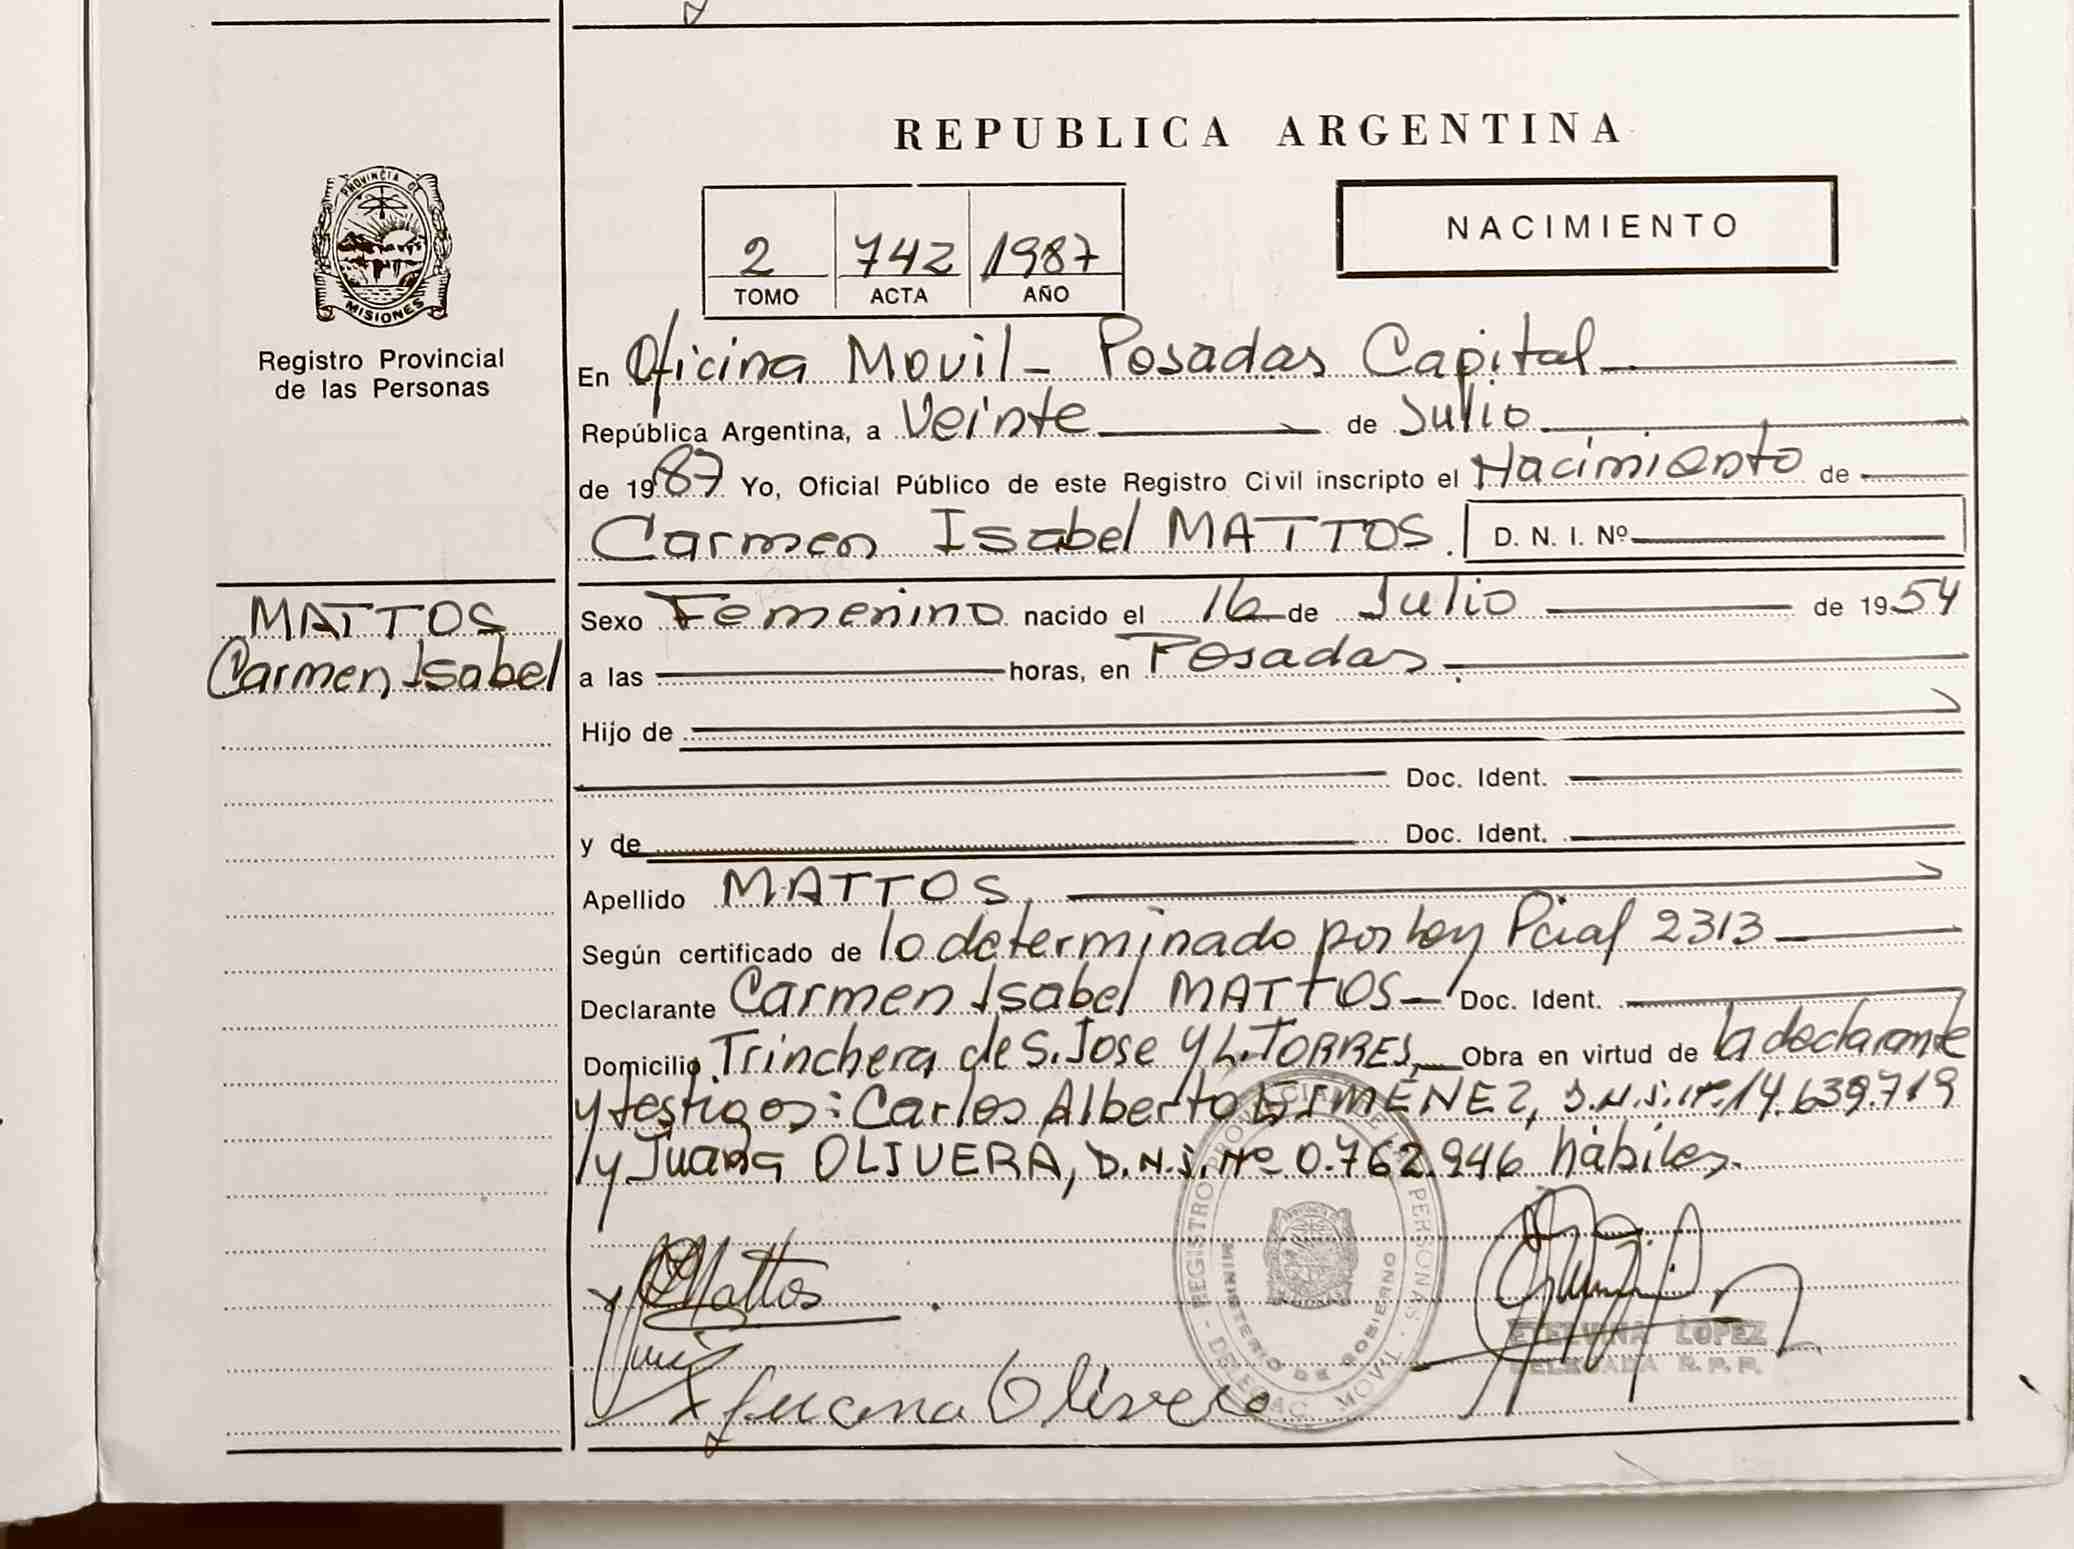 REPUBLICA ARGENTINA
PROVINCIA DE
MISIONES
Registro Provincial
de las Personas
NACIMIENTO
2 742 1987
TOMO ACTA AÑO
En Oficina Movil - Posadas Capital
República Argentina, a Veinte de Julio
de 1987 Yo, Oficial Público de este Registro Civil inscripto el Nacimiento de
Carmen Isabel MATTOS. D. N. I. Nº
MATTOS
Carmen Isabel
Sexo Femenino nacido el 16 de Julio de 1954
a las horas, en Posadas
Hijo de
Doc. Ident.
y de Doc. Ident.
Apellido MATTOS
Según certificado de lo determinado por Ley Pcial 2313
Declarante Carmen Isabel MATTOS - Doc. Ident.
Domicilio Trinchera de S. Jose y L. TORRES, Obra en virtud de la declarante
y testigos: Carlos Alberto GIMENEZ, D.N.I. Nº 14.639.719
y Juana OLIVERA, D.N.I. Nº 0.762.946 hábiles.
REGISTRO PROVINCIAL DE LAS PERSONAS - DELEGAC. MOVIL
MINISTERIO DE GOBIERNO
Mattos
ETELVINA LOPEZ
DELEGADA R. P. P.
Juana Olivera